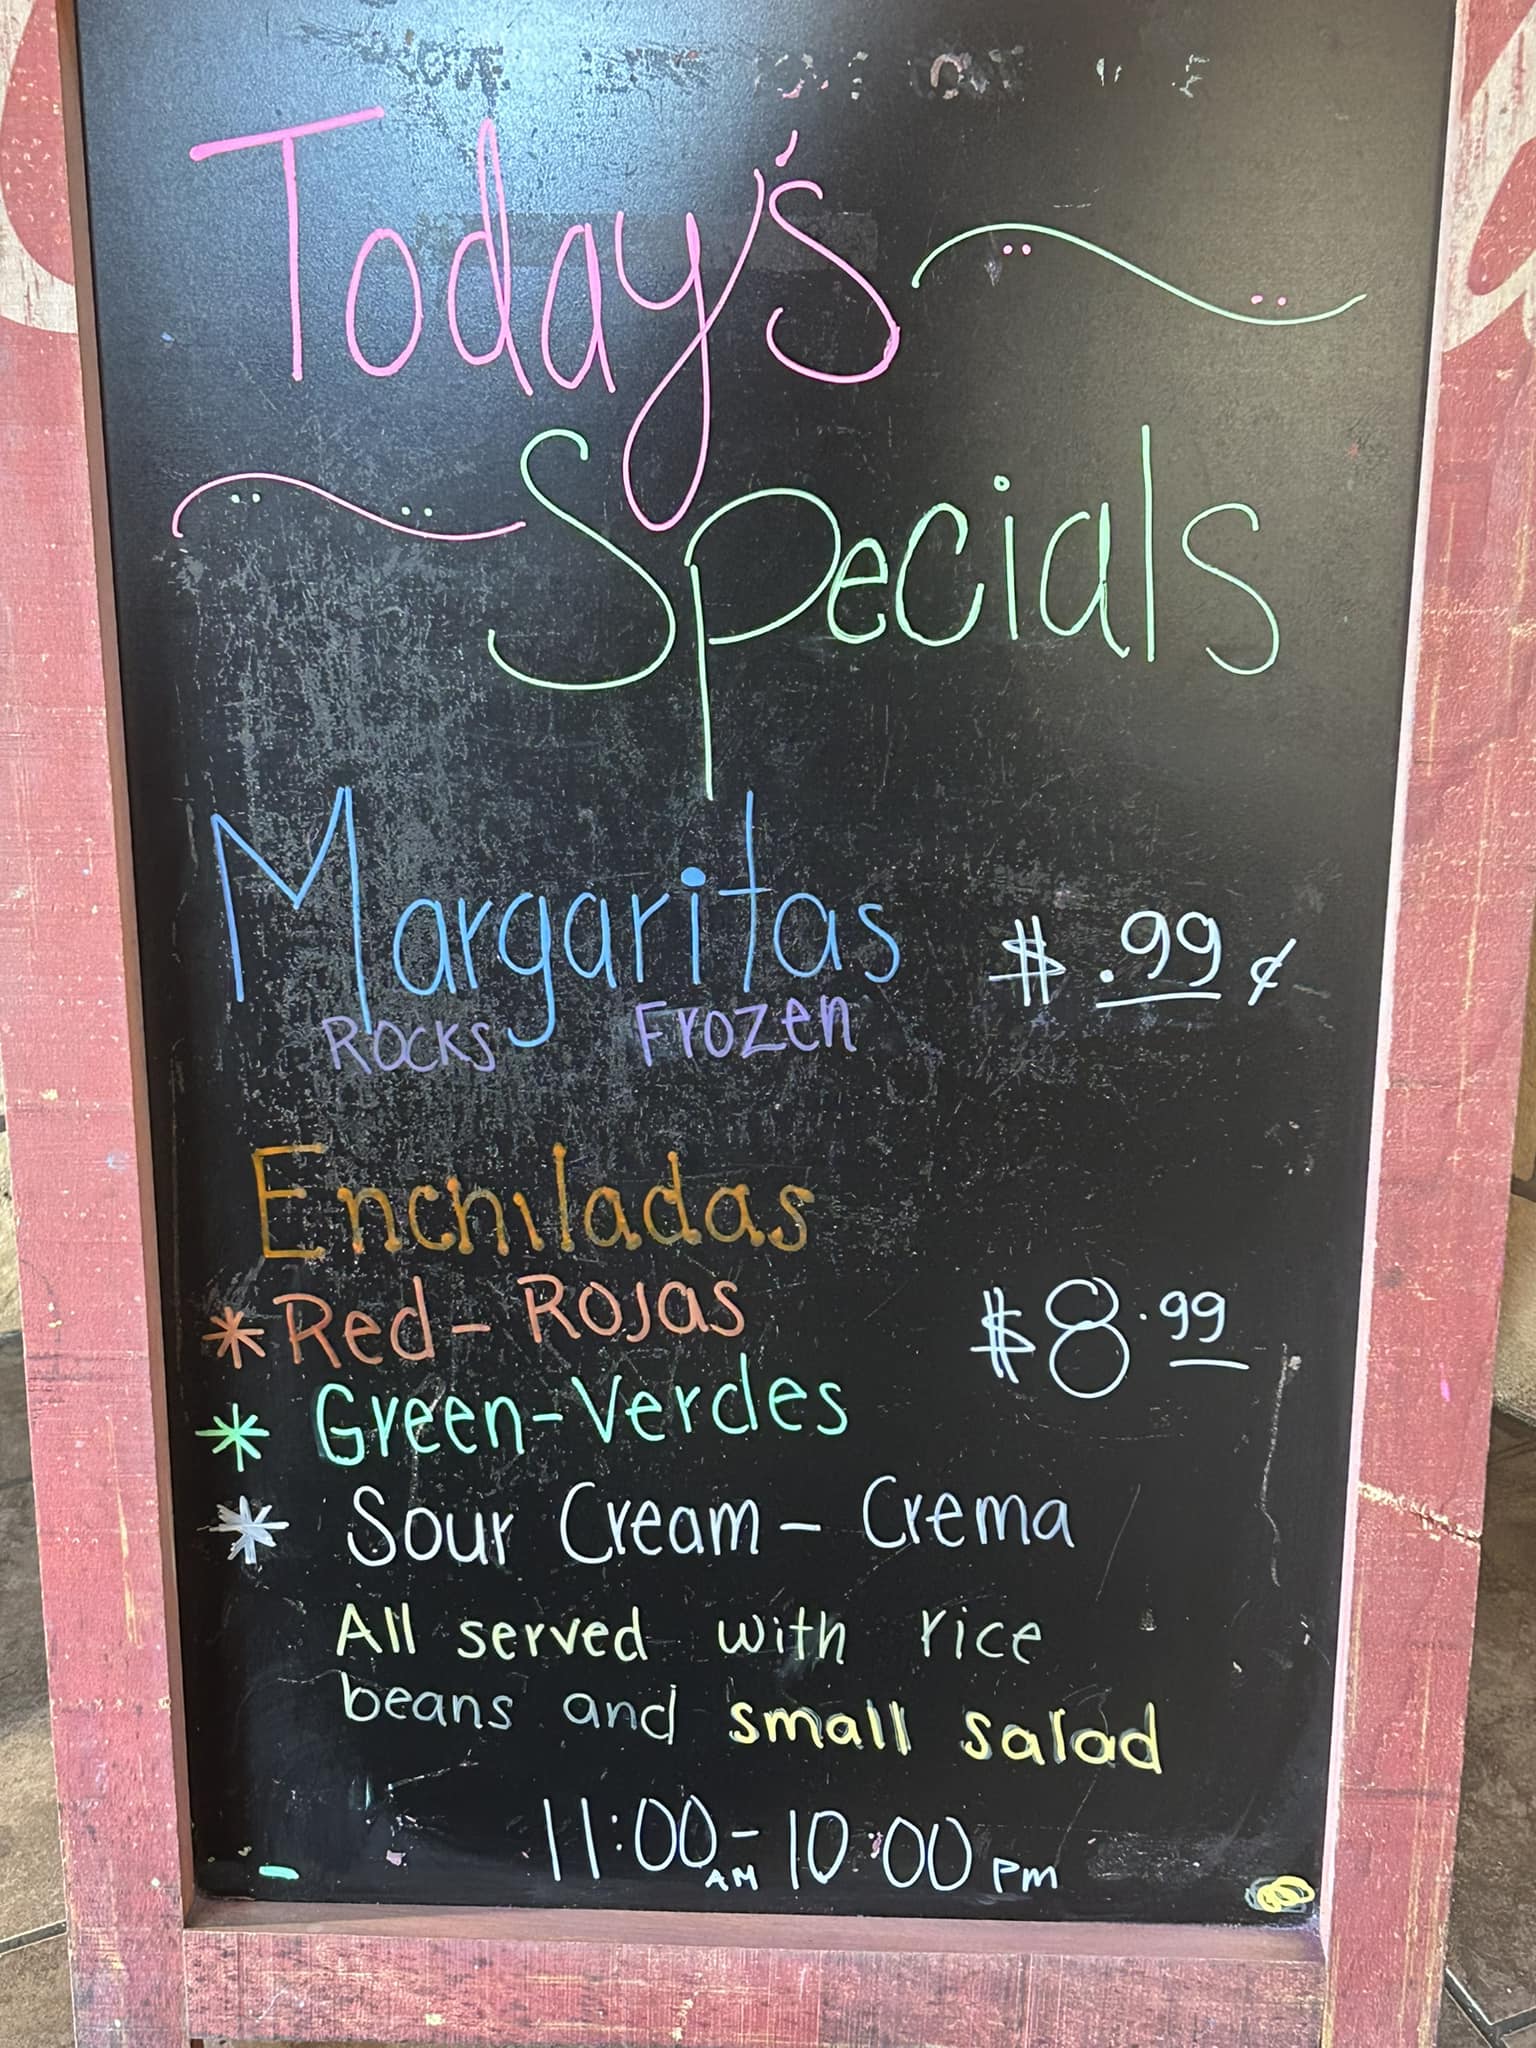 Today's
Specials
Margaritas $ .99 ¢
Rocks Frozen
Enchiladas
* Red - Rojas $8.99
* Green - Verdes
* Sour Cream - Crema
All served with rice
beans and small salad
11:00 AM - 10:00 PM